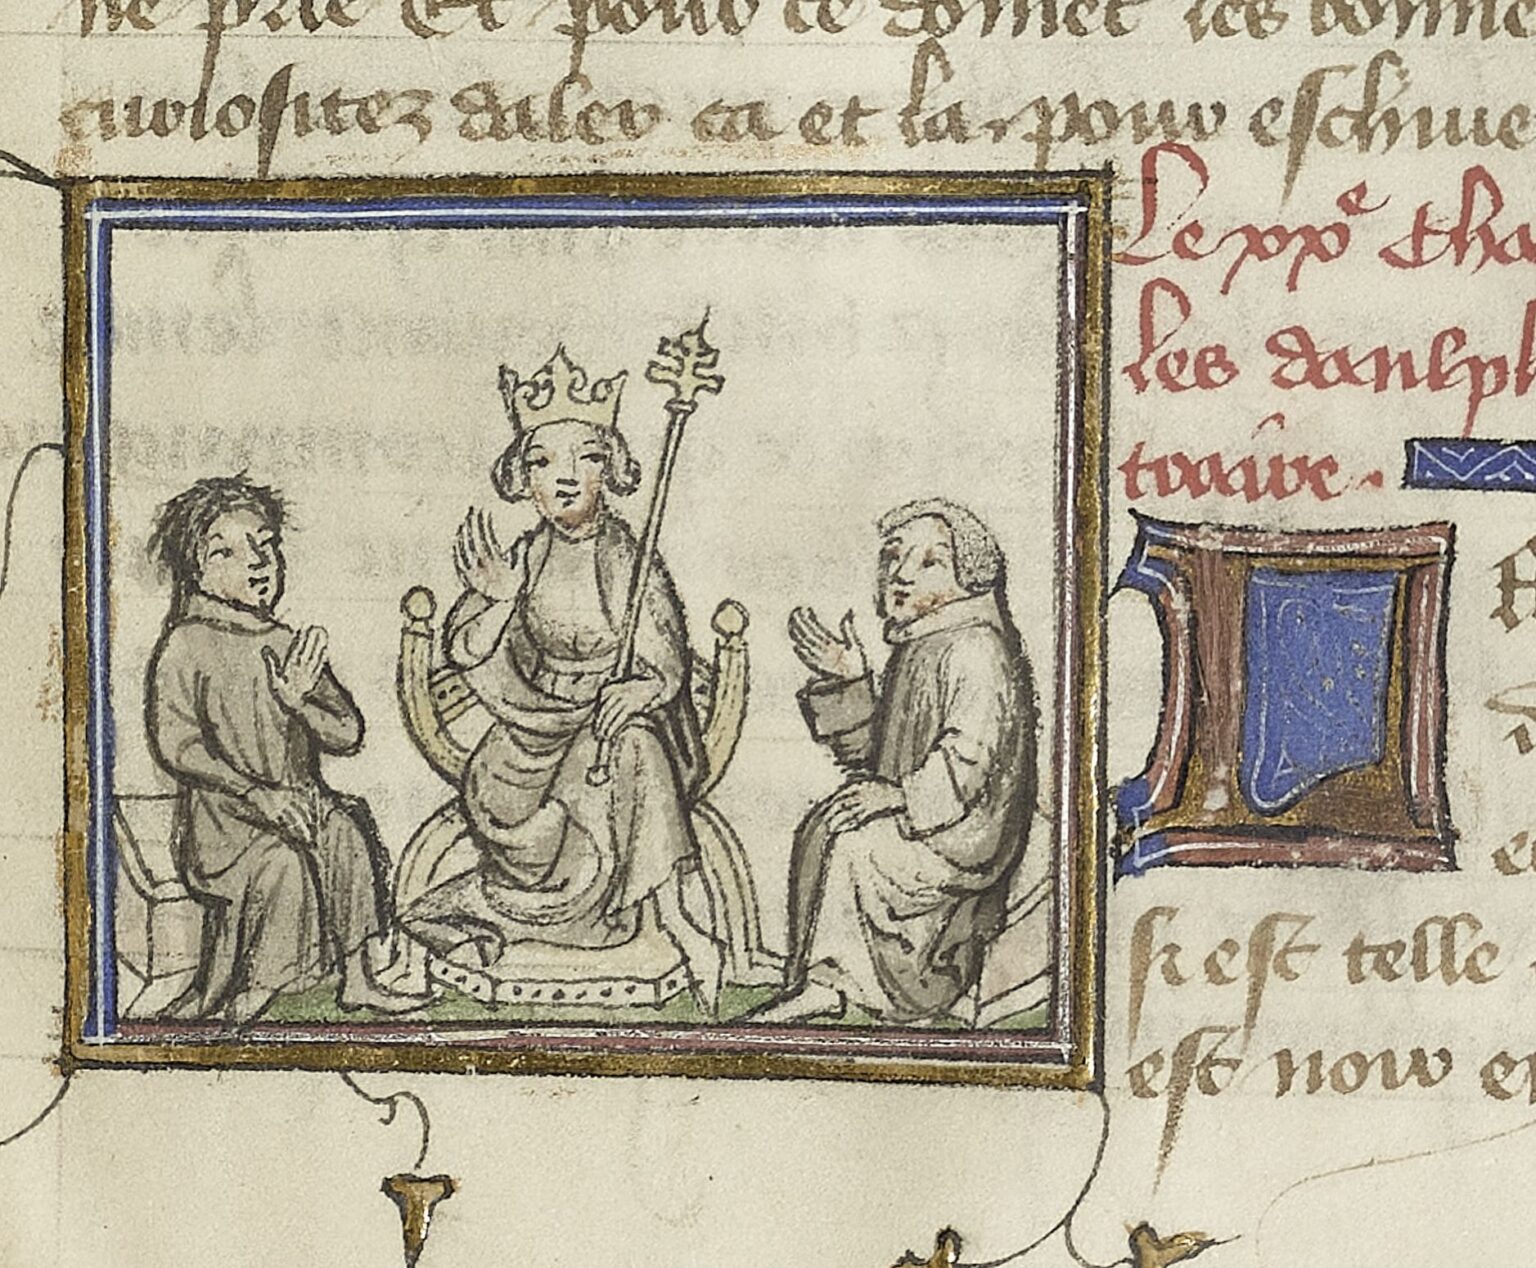 ne prie Et pour ce donnet les bonne
curiositez daler ca et la. pour eschiue
Le xxe Cha
les daulph
traire.
si est telle
est noir et